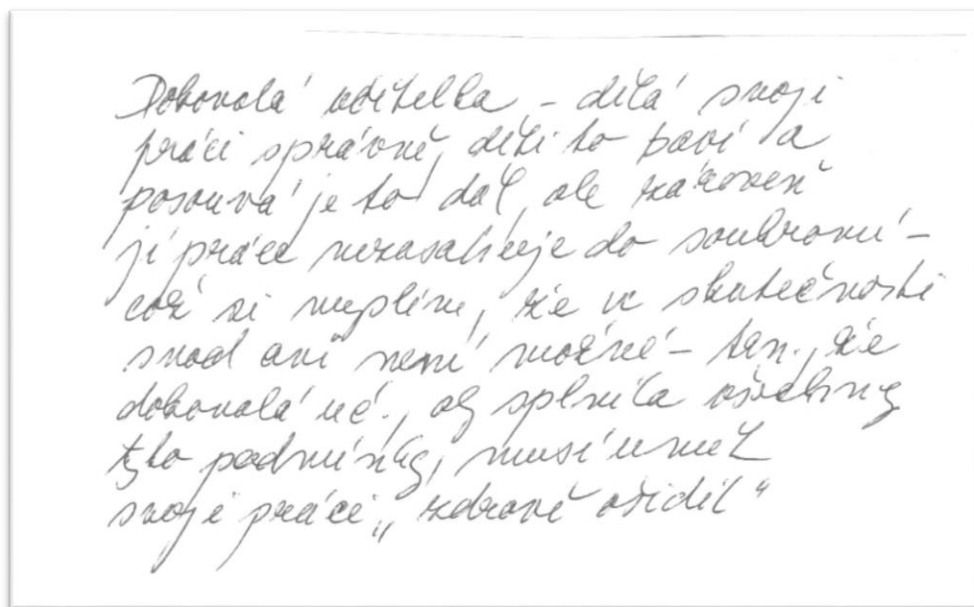 Dokonalá učitelka - dělá svoji
práci správně, děti to baví a
posouvá je to dál, ale zároveň
jí práce nezasahuje do soukromí -
což si myslím, že ve skutečnosti
snad ani není možné - tzn., že
dokonalá uč., aby splnila všechny
tyto podmínky, musí umět
svoji práci „zdravě ošidit“